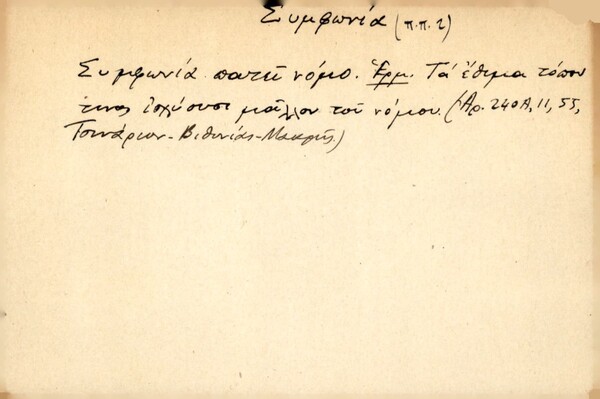 Συμφωνία (π.π. 2)
Συμφωνία πατεῖ νόμο. Ἑρμ. Τά ἔθιμα τόπου
τινος ἰσχύουσι μᾶλλον τοῦ νόμου. (Ἀρ. 240Α, 11, 55,
Τσινάριον - Βιθυνίας - Μακρῆς)